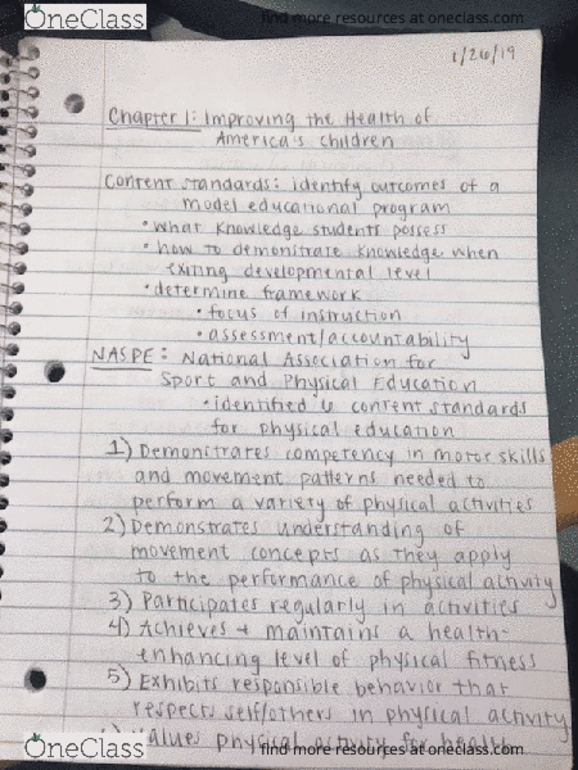 OneClass
find more resources at oneclass.com
1/26/19
Chapter 1: Improving the Health of
America's children
Content standards: identify outcomes of a
model educational program
• what knowledge students possess
• how to demonstrate knowledge when
exiting developmental level
• determine framework
• focus of instruction
• assessment/accountability
NASPE: National Association for
Sport and Physical Education
• identified 6 content standards
for physical education
1) Demonstrates competency in motor skills
and movement patterns needed to
perform a variety of physical activities
2) Demonstrates understanding of
movement concepts as they apply
to the performance of physical activity
3) Participates regularly in activities
4) Achieves + maintains a health-
enhancing level of physical fitness
5) Exhibits responsible behavior that
respects self/others in physical activity
values physical activity for health
OneClass
find more resources at oneclass.com